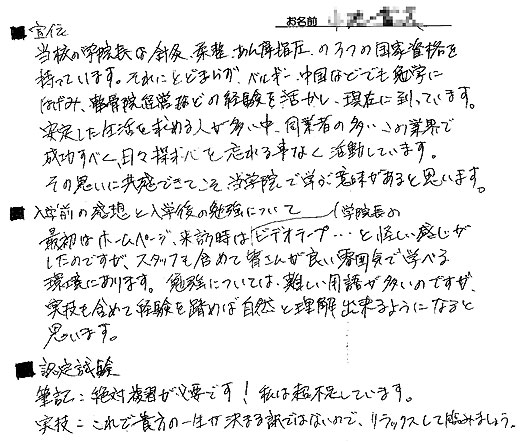 お名前
■ 宣伝
当校の学院長は針灸、柔整、あん摩指圧、の3つの国家資格を
持っています。それにとどまらず、ベルギー、中国などでも勉学に
はげみ、整骨院経営などの経験を活かし、現在に到っています。
安定した生活を求める人が多い中、同業者の多いこの業界で
成功すべく、日々探求心を忘れる事なく活動しています。
その思いに共感できてこそ当学院で学ぶ意味があると思います。
■ 入学前の感想と入学後の勉強について
(学院長の
最初はホームページ、来訪時はビデオテープ…と怪しい感じが
したのですが、スタッフも含めて皆さんが良い雰囲気で学べる
環境にあります。勉強については、難しい用語が多いのですが、
実技も含めて経験を踏めば自然と理解出来るようになると
思います。
■ 認定試験
筆記:絶対復習が必要です! 私は超不足しています。
実技:これで貴方の一生が決まる訳ではないので、リラックスして臨みましょう。